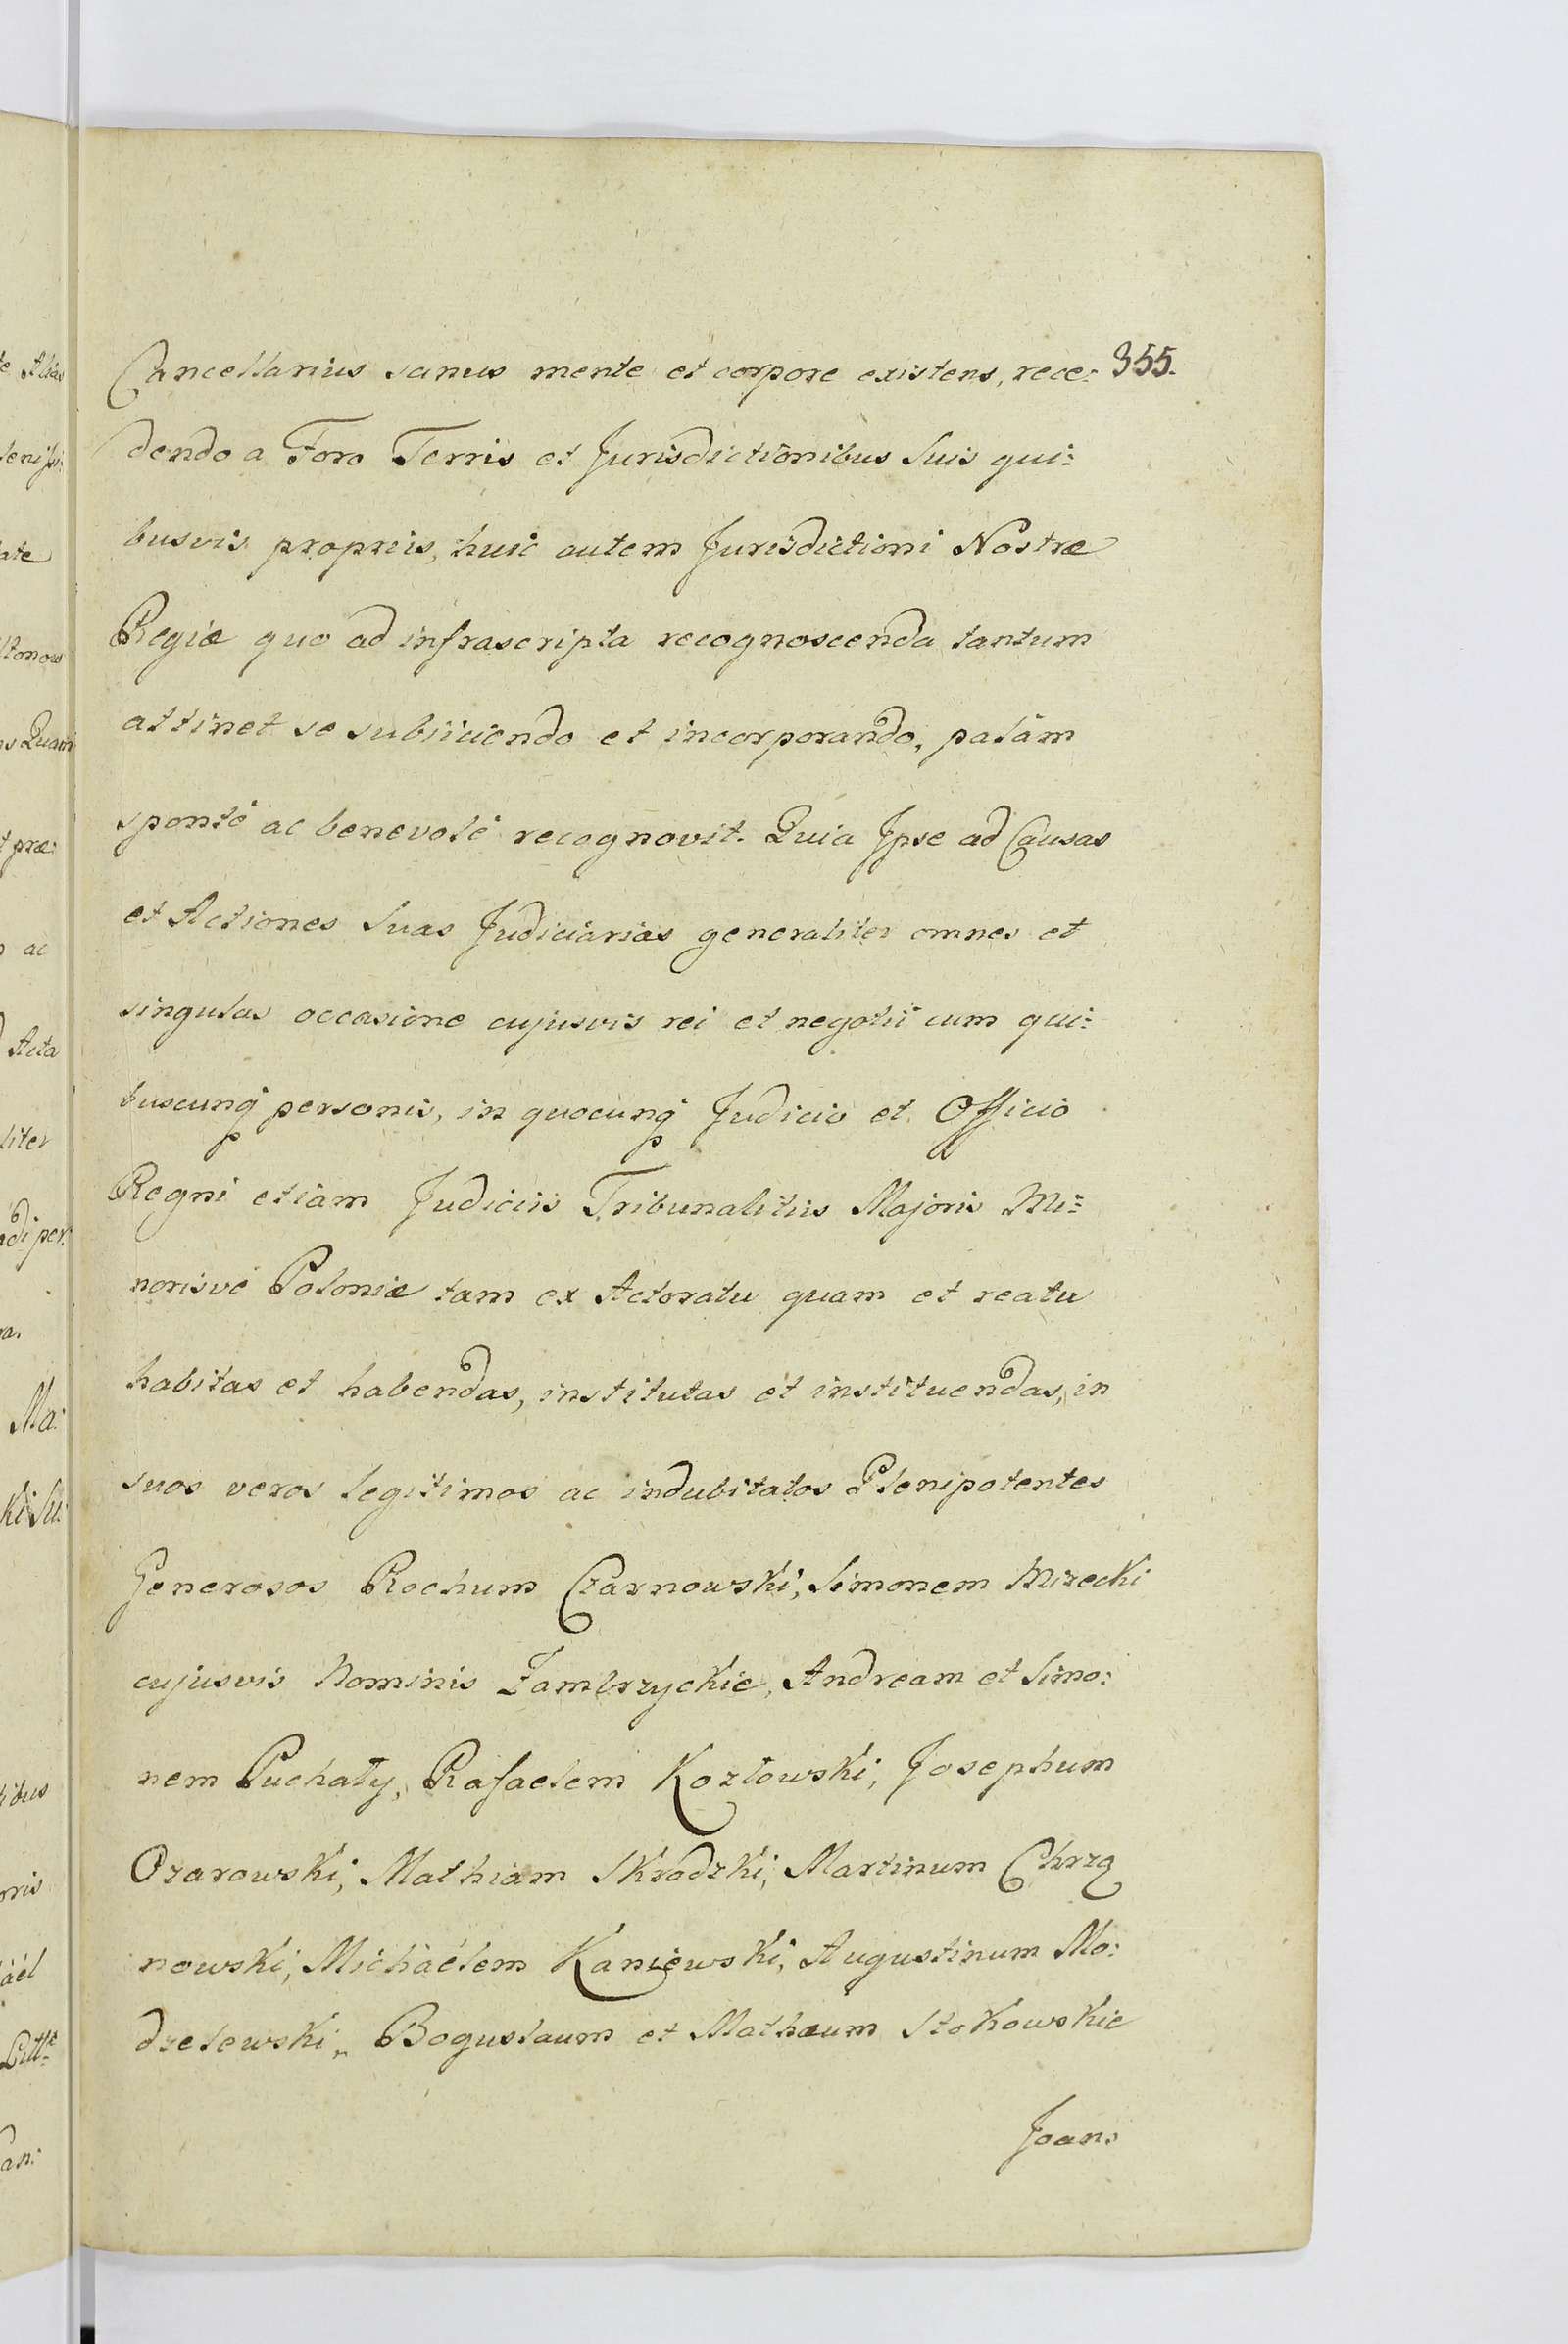 355.
Cancellarius sanus mente et corpore existens, rece-
dendo a Foro Terris et Jurisdictionibus Suis qui-
busvis propreis, huic autem Jurisdictioni Nostræ
Regiæ quo ad infrascripta recognoscenda tantum
attinet se subiiciendo et incorporando, palàm
spontè ac benevolè recognovit. Quia Ipse ad Causas
et Actiones Suas Judiciarias generaliter omnes et
singulas occasione cujusvis rei et negotii cum qui-
buscunq personis, in quocunq Judicio et Officio
Regni etiam Judiciis Tribunalitiis Majoris Mi-
norisve Poloniæ tam ex Actoratu quam et reatu
habitas et habendas, institutas et instituendas, in
suos veros legitimos ac indubitatos Plenipotentes
Generosos Rochum Czarnowski, Simonem Mirecki
cujusvis Nominis Zambrzyckie, Andream et Simo-
nem Puchały, Rafaelem Kozłowski, Josephum
Ozarowski, Mathiam Skrodzki, Martinum Chrzą
nowski, Michaélem Kaniewski, Augustinum Mo-
dzelewski, Boguslaum et Mathæum Stokowskie
Joan:
te Alias
late
ns Quam
t præ:
ac
Acta
liter
Ma:
Ki Su:
tibus
oris
áèl
an: